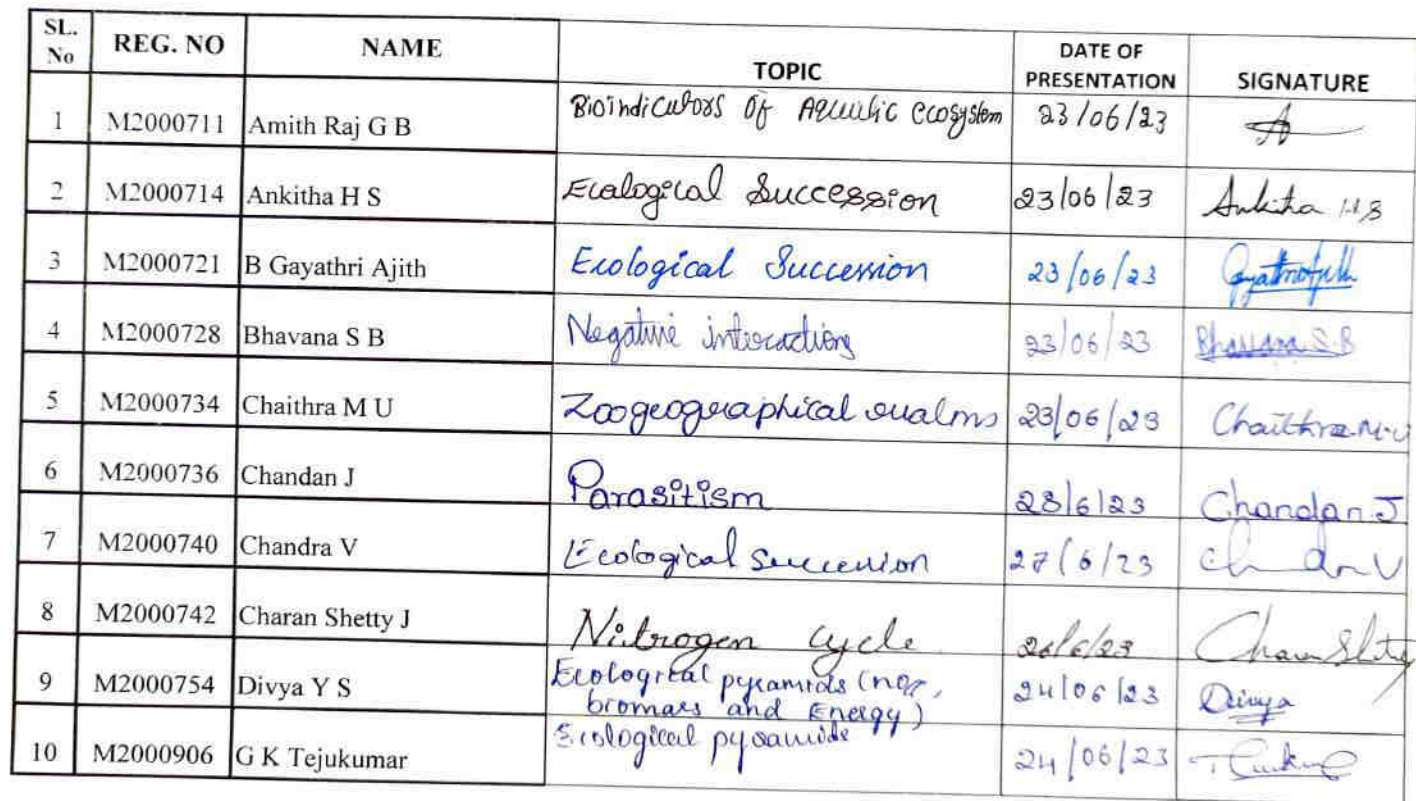 SL. No REG. NO NAME TOPIC DATE OF PRESENTATION SIGNATURE
1 M2000711 Amith Raj G B Bioindicators Of Aquatic ecosystem 23/06/23
2 M2000714 Ankitha H S Ecalogical Succession 23/06/23 Ankitha H S
3 M2000721 B Gayathri Ajith Ecological Succession 23/06/23
4 M2000728 Bhavana S B Negative interactions 23/06/23 Bhavana S.B
5 M2000734 Chaithra M U Zoogeographical realms 23/06/23 Chaithra M.U
6 M2000736 Chandan J Parasitism 23/6/23 Chandan J
7 M2000740 Chandra V Ecological Succession 27/6/23
8 M2000742 Charan Shetty J Nitrogen cycle
9 M2000754 Divya Y S Ecological pyramids (no.,
biomass and Energy) 24/06/23 Divya
10 M2000906 G K Tejukumar Ecological pyramids 24/06/23